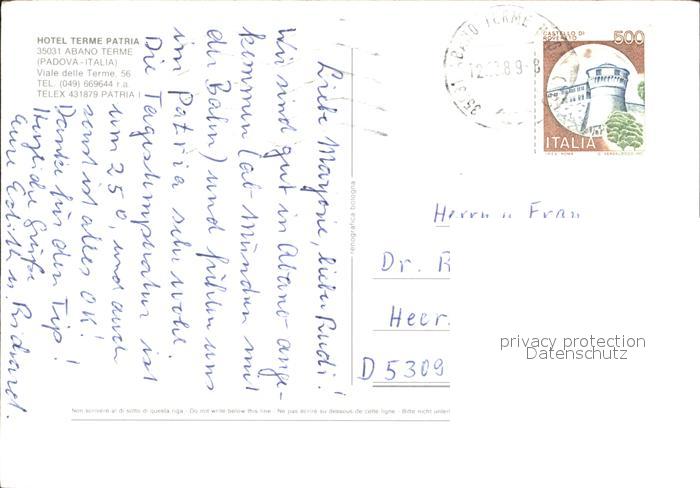 HOTEL TERME PATRIA
35031 ABANO TERME
(PADOVA - ITALIA)
Viale delle Terme, 56
TEL. (049) 669644 r.a.
TELEX 431879 PATRIA I
Liebe Marjorie, lieber Rudi!
Wir sind gut in Abano ange-
kommen (ab München mit
der Bahn) und fühlen uns
im Patria sehr wohl.
Die Tagestemperatur ist
um 25°, und auch
sonst ist alles OK!
Danke für den Tip!
Herzliche Grüße
Eure Edith u.
renografica bologna
ABANO TERME
35031
CASTELLO DI
ROVERETO
500
ITALIA
Herrn u Frau
Dr. R
Heer.
D 5309
privacy protection
Datenschutz
Non scrivere al di sotto di questa riga - Do not write below this line - Ne pas écrire su dessous de cette ligne - Bitte nicht unter